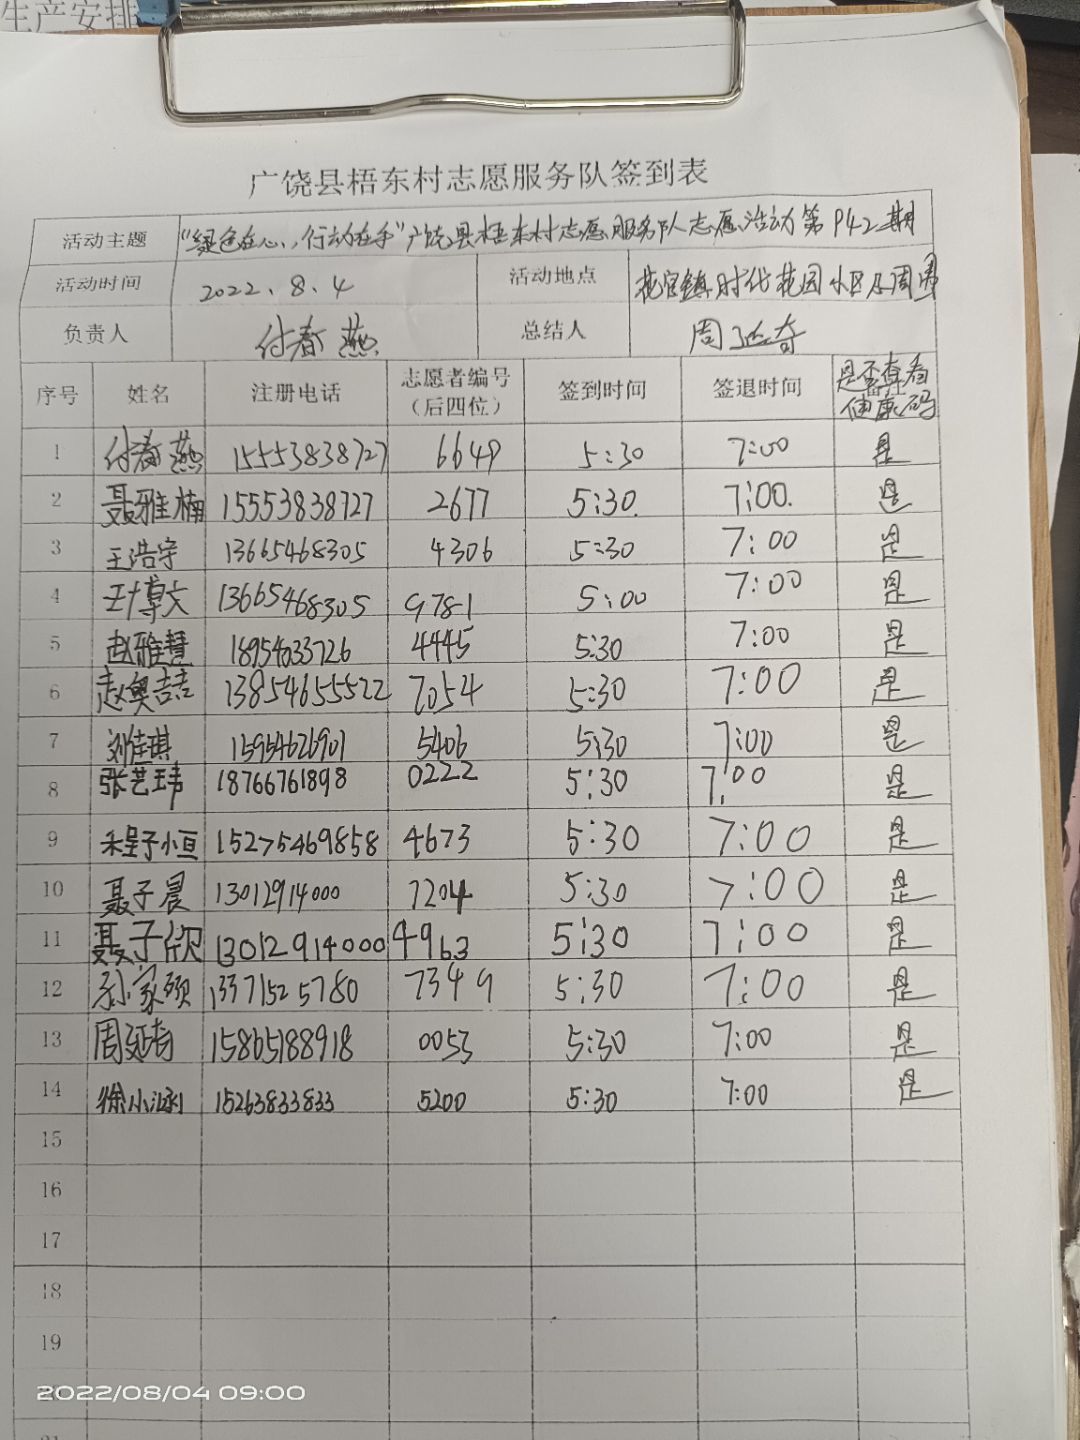 生产安排
广饶县梧东村志愿服务队签到表
活动主题 "绿色在心，行动在手"广饶县梧东村志愿服务队志愿活动第P42期
活动时间 2022、8、4 活动地点 花官镇时代花园小区及周围
负责人 付春燕 总结人 周延奇
序号 姓名 注册电话 志愿者编号（后四位） 签到时间 签退时间 是否查看健康码
1 付春燕 15553838727 6649 5:30 7:00 是
2 聂雅楠 15553838727 2677 5:30 7:00 是
3 王浩宇 13665468305 4306 5:30 7:00 是
4 王博文 13665468305 9781 5:00 7:00 是
5 赵雅慧 18954033726 4445 5:30 7:00 是
6 赵奥喆 13854655522 7054 5:30 7:00 是
7 刘佳琪 15954626901 5406 5:30 7:00 是
8 张艺玮 18766761898 0222 5:30 7:00 是
9 程子恒 15275469858 4673 5:30 7:00 是
10 聂子晨 13012914000 7204 5:30 7:00 是
11 聂子欣 13012914000 4963 5:30 7:00 是
12 孙家硕 13371525780 7349 5:30 7:00 是
13 周延奇 15865188918 0053 5:30 7:00 是
14 徐小涵 15263833833 5200 5:30 7:00 是
15
16
17
18
19
2022/08/04 09:00